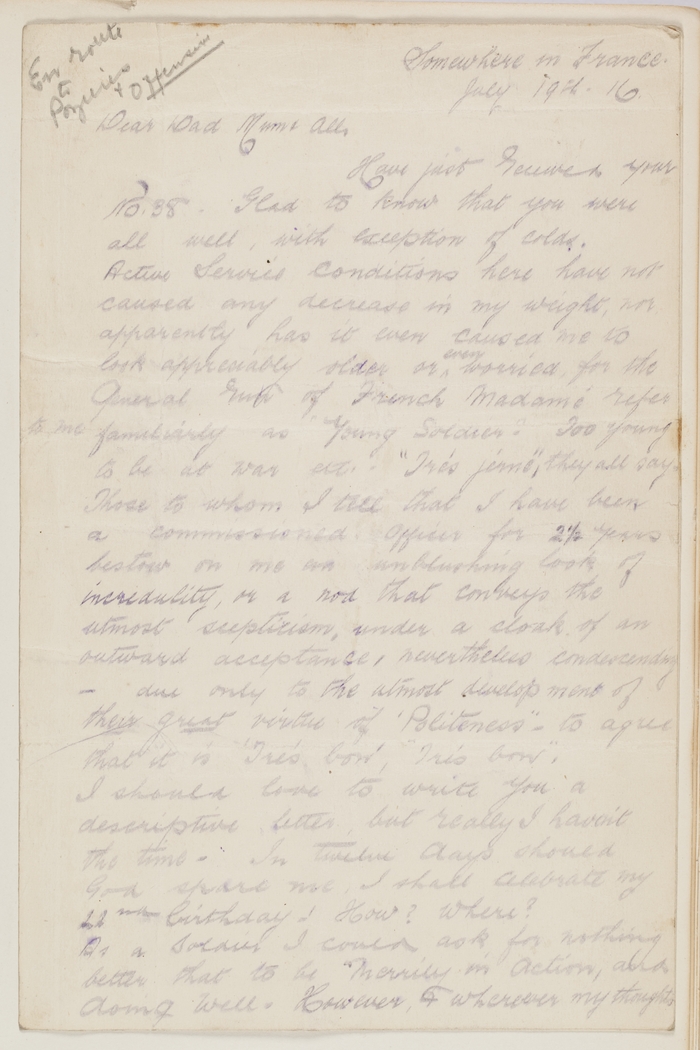 En route
to
Pozieres
+ Offensive
Somewhere in France.
July 19th. 16.
Dear Dad Mum & All,
Have just received your
No. 38. Glad to know that you were
all well, with exception of colds.
Active Service conditions here have not
caused any decrease in my weight, nor
apparently has it even caused me to
look appreciably older or even worried, for the
General run of French Madame refer
to me familiarly as "Young Soldier". Too young
to be at war etc. "Trés jerne", they all say
Those to whom I tell that I have been
a commissioned Officer for 2½ years
bestow on me an unblushing look of
incredulity, or a nod that conveys the
utmost scepticism, under a cloak of an
outward acceptance, nevertheless condescending
- due only to the utmost development of
their great virtue of "Politeness" - to agree
that it is "Trés bon", "Trés bon".
I should love to write you a
descriptive letter, but really I havn't
the time. In twelve days should
God spare me, I shall celebrate my
22nd birthday! How? Where?
As a Soldier I could ask for nothing
better that to be "Merrily in Action, and
doing well. However, wherever my thoughts